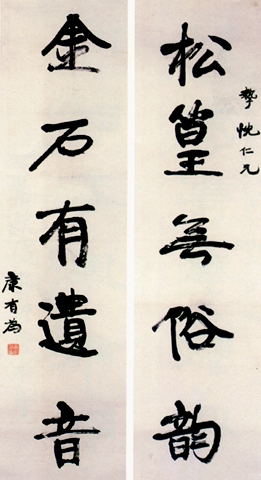 松篁無俗韵
仁兄
金石有遺音
康有為